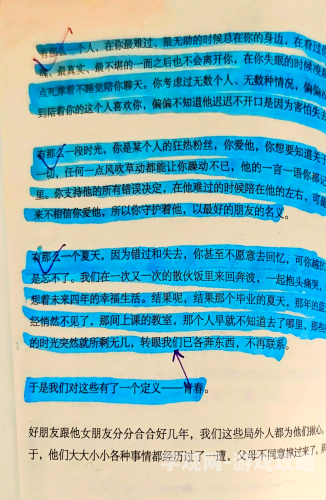 有那么一个人,在你最难过、最无助的时候总在你的身边,在看过你
、最真实、最不堪的一面之后也不会离开你,在你失眠的时候凌
点死撑着不睡觉陪你聊天。你考虑过无数个人、无数种情况,偏偏
到陪着你的这个人喜欢你,偏偏不知道他迟迟不开口是因为害怕失去
有那么一段时光,你是某个人的狂热粉丝,你爱他,你想要知道关于
一切,任何一点风吹草动都能让你躁动不已,他的一言一语你都
里。你支持他的所有错误决定,在他难过的时候陪在他的左右,可是
来不相信你爱他,所以你守护着他,以最好的朋友的名义。
有那么一个夏天,因为错过和失去,你甚至不愿意去回忆,可你越
是忘不了。我们在一次又一次的散伙饭里来回奔波,一起抱头痛哭,
想着未来四年的幸福生活。结果呢,结果那个毕业的夏天,那年的蓝
经悄然不见了,那间上课的教室,那个人早就不知道去了哪里,那些
的时光突然就所剩无几,转眼我们已各奔东西,不再联系。
于是我们对这些有了一个定义——青春。
好朋友跟他女朋友分分合合好几年,我们这些局外人都为他们揪心。
于,他们大大小小各种事情都经历过了一遭,父母不同意撑过来了,
学戏网-游戏攻略